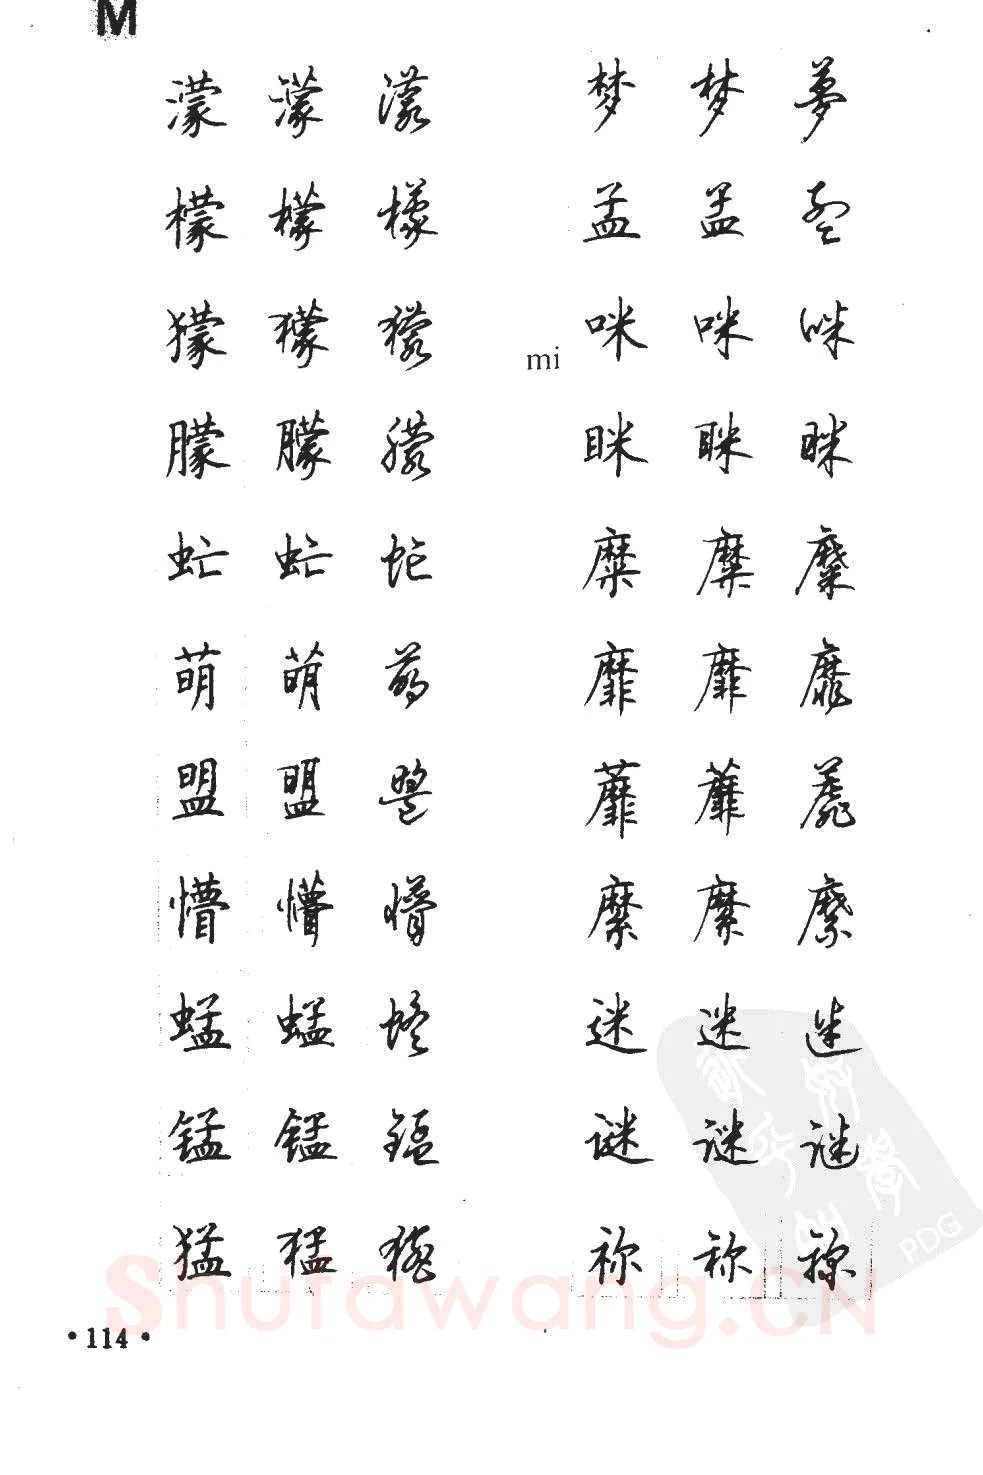 M
濛 濛 濛
檬 檬 檬
獴 獴 獴
朦 朦 朦
虻 虻 虻
萌 萌 萌
盟 盟 盟
懵 懵 懵
蜢 蜢 蜢
锰 锰 锰
猛 猛 猛
梦 梦 夢
孟 孟 孟
mi
咪 咪 咪
眯 眯 眯
糜 糜 糜
靡 靡 靡
蘼 蘼 蘼
縻 縻 縻
迷 迷 迷
谜 谜 谜
祢 祢 祢
·114·
Shufawang.CN
PDG